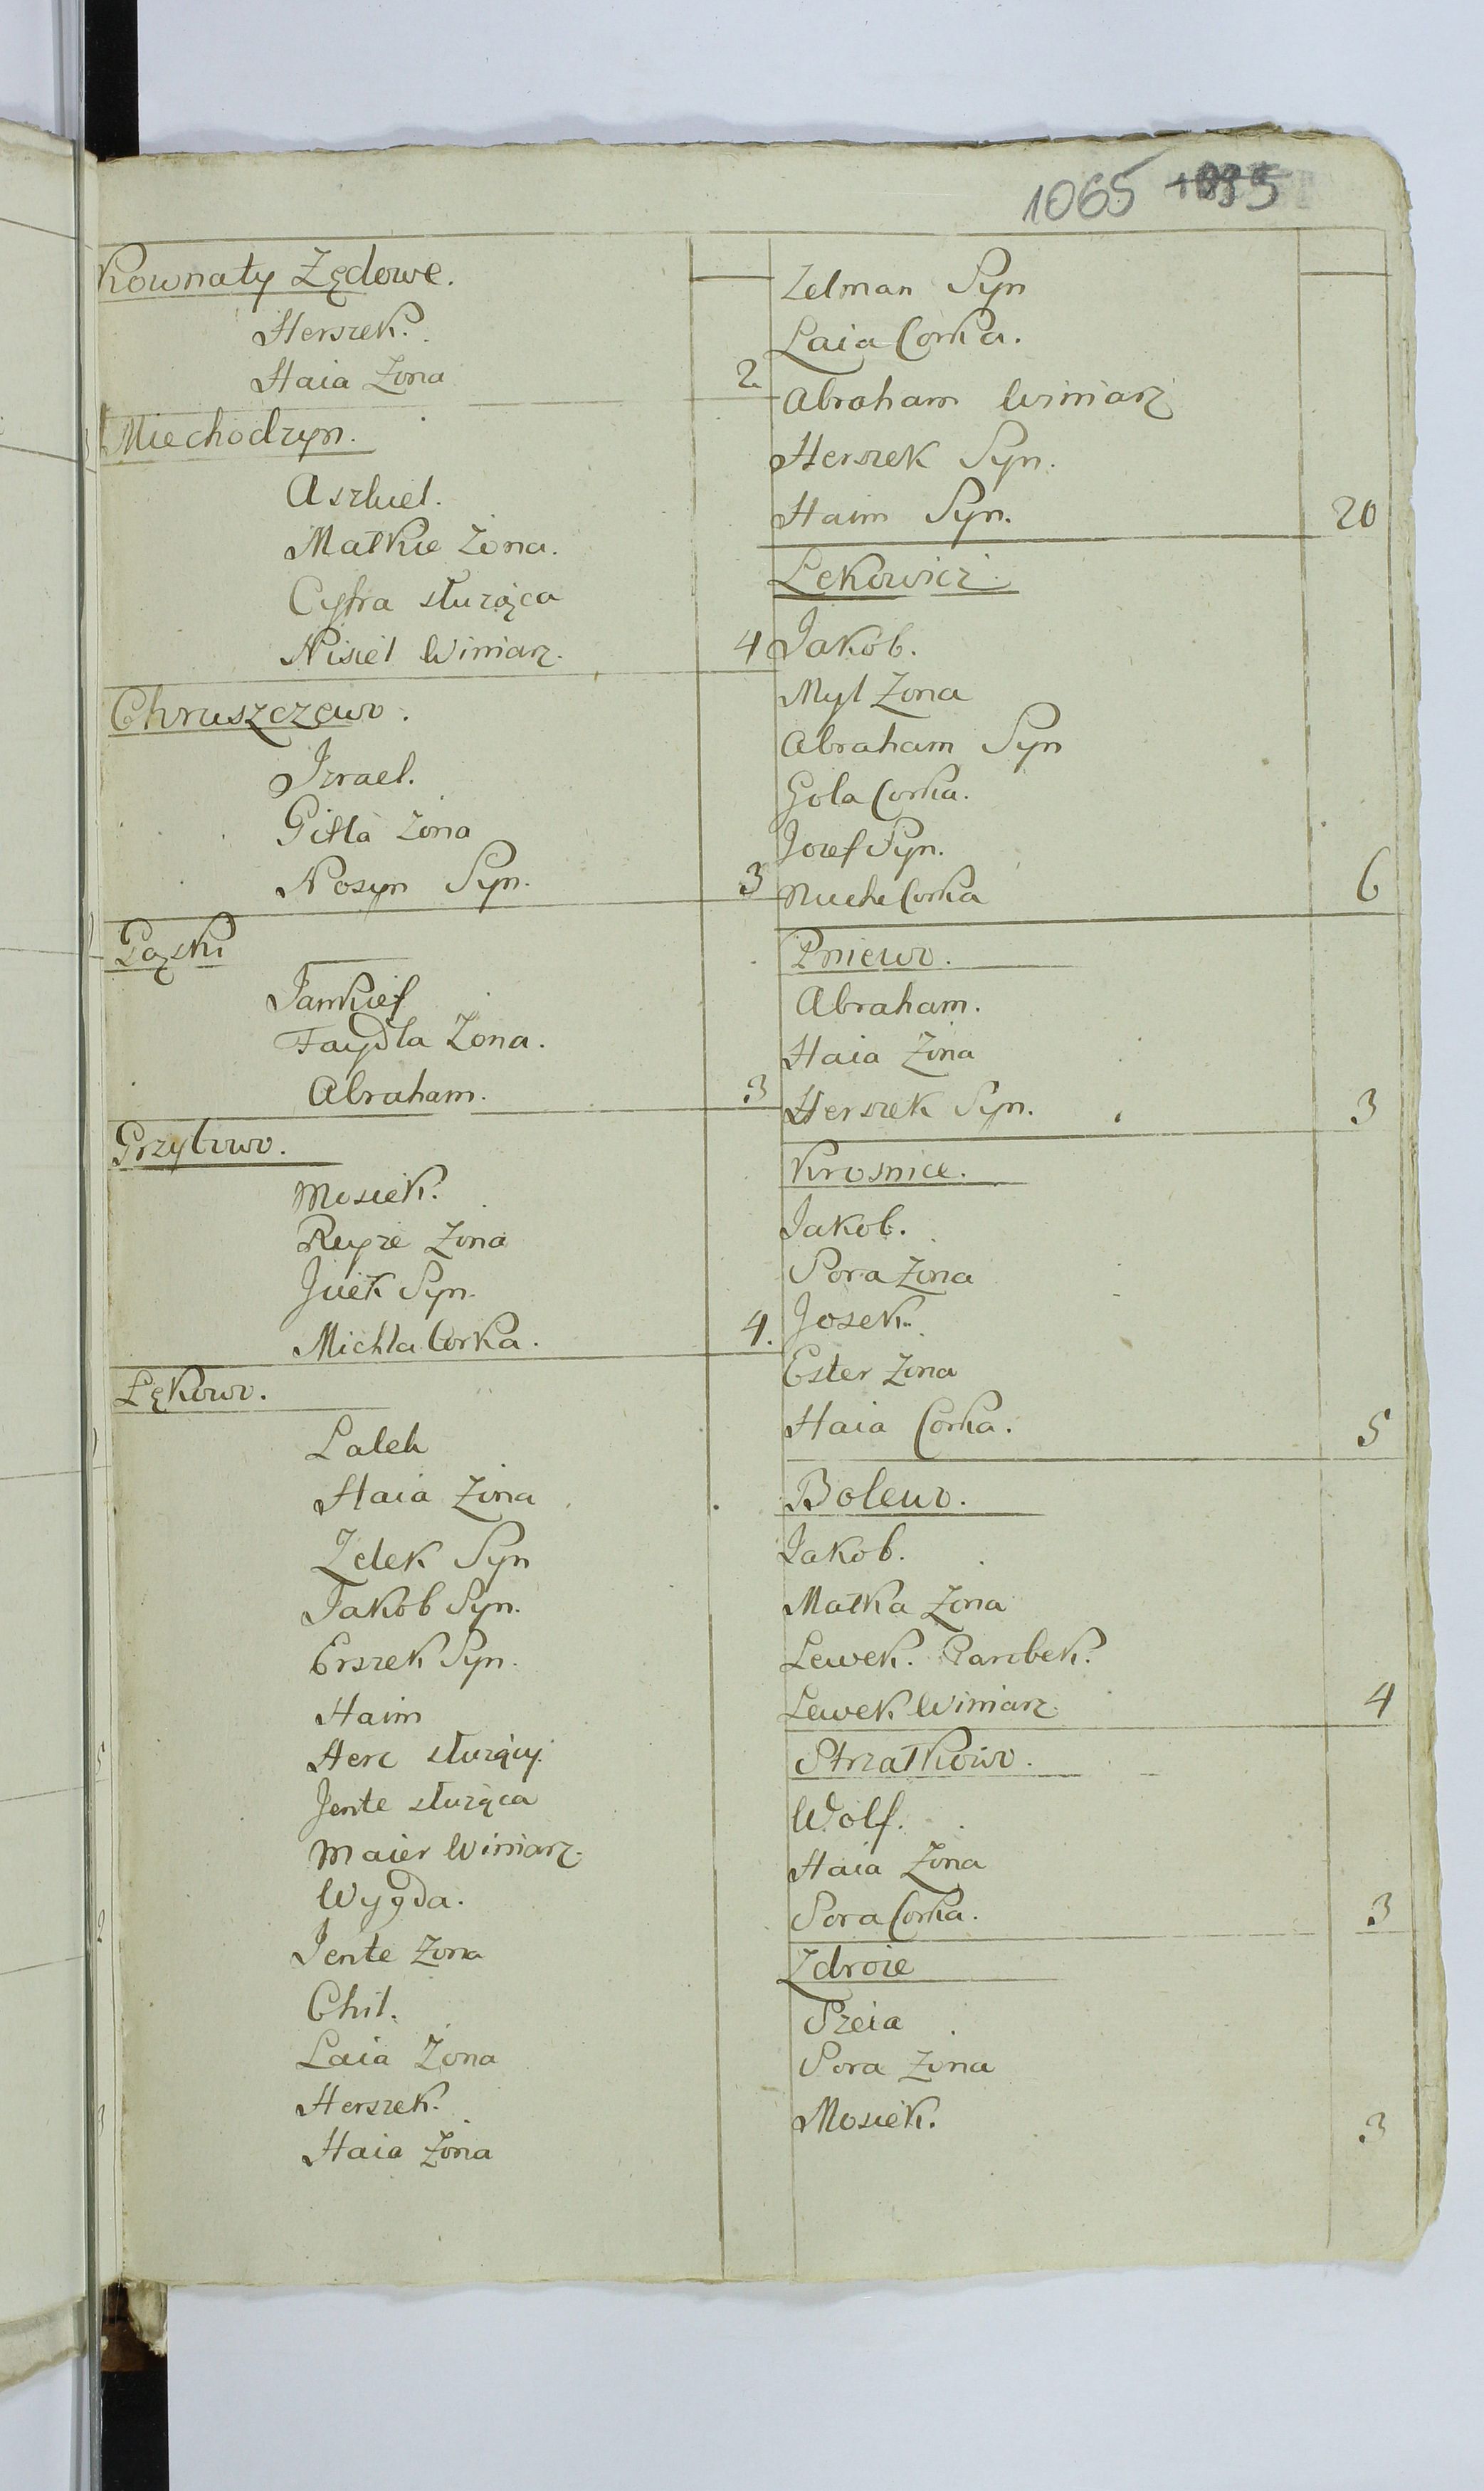 1065 1035
Kownaty Zędowe.
Herszek.
Haia Zona 2
Miechodzyn.
Aszkiel.
Matkie Zona.
Cyfra służąca
Nisiel Winiarz. 4
Chruszczewo.
Izrael.
Gitla Zona
Nosyn Syn. 3
Pąski
Jankief
Faydla Zona.
Abraham. 3
Grzybowo.
Mosiek.
Reyze Zona
Juek Syn.
Michla Corka. 4.
Łękowo.
Laleh
Haia Zona
Zelek Syn
Jakob Syn.
Erszek Syn.
Haim
Herc służący.
Jente służąca
Maier Winiarz.
Wygda.
Jente Zona
Chil.
Laia Zona
Herszek.
Haia Zona
Zelman Syn
Laia Corka.
Abraham Winiarz
Herszek Syn.
Haim Syn. 20
Lekowicz.
Jakob.
Myl Zona
Abraham Syn
Gola Corka.
Jozef Syn.
Ruche Corka 6
Pniewo.
Abraham.
Haia Zona
Herszek Syn. 3
Krosnice.
Jakob.
Sora Zona
Josek.
Ester Zona
Haia Corka. 5
Bolewo.
Jakob.
Matka Zona
Lewek. Parobek.
Lewek Winiarz. 4
Strzałkowo.
Wolf.
Haia Zona
Sora Corka. 3
Zdroie
Szeia
Sora Zona
Mosiek. 3